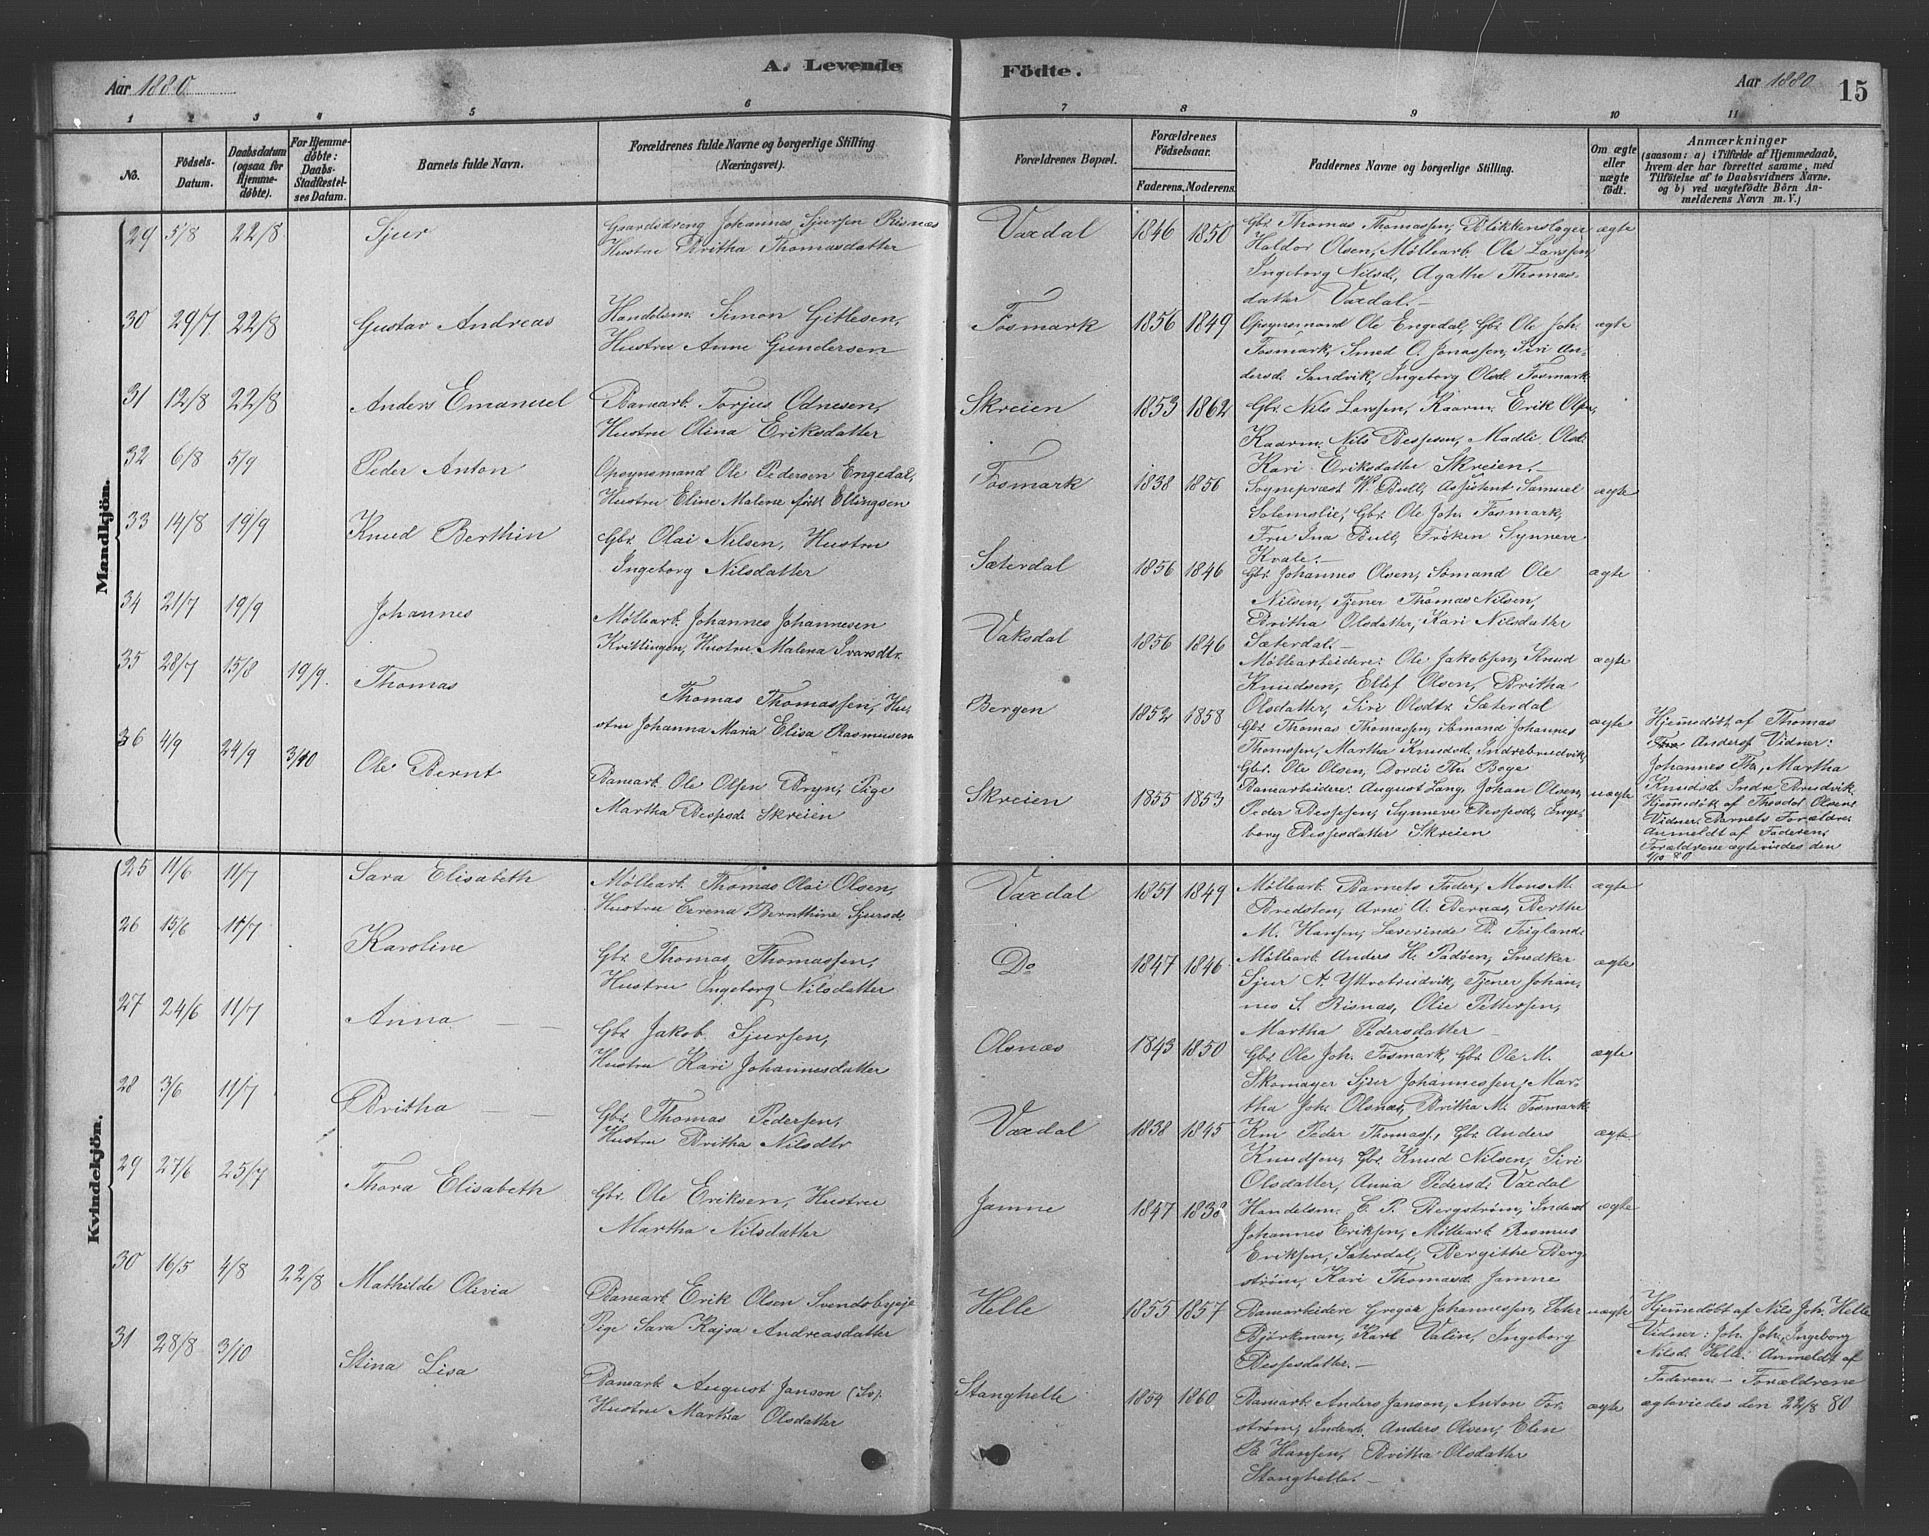 Aar 1880
A. Levende Födte.
Aar 1880
15
1 2 3 4 5 6 7 8 9 10 11
No.
Födsels-Datum.
Daabsdatum (ogsaa for Hjemmedöbte).
For Hjemmedöbte: Daabs-Stadfæstelses Datum.
Barnets fulde Navn.
Forældrenes fulde Navne og borgerlige Stilling (Næringsvei).
Forældrenes Bopæl.
Forældrenes Födselsaar.
Faderens. Moderens.
Faddernes Navne og borgerlige Stilling.
Om ægte eller uægte födt.
Anmærkninger
(saasom: a) i Tilfælde af Hjemmedaab, hvem der har forrettet samme, med Tilföielse af to Daabsvidners Navne, og b) ved uægtefödte Börn Anmelderens Navn m. V.)
Mandkjön.
29 5/8 22/8 Sjur
Gaardsdreng Johannes Sjursen Risnæs
Hustru Britha Thomasdatter
Vaxdal 1846 1850
Gbr. Thomas Thomassen, Blikkenslager
Haldor Olsen, Møllearb. Ole Larssen,
Ingeborg Nilsd., Agathe Thomas-
datter Vaxdal.
ægte
30 29/7 22/8 Gustav Andreas
Handelsm. Simon Gitlesen,
Hustru Anne Gundersen
Fosmark 1856 1849
Opsynsmand Ole Engedal, Gbr. Ole Joh.
Fosmark, Smed O. Jonassen, Siri An-
dersd. Sandvik, Ingeborg Olsd. Fosmark
ægte
31 12/8 22/8 Anders Emanuel
Banearb. Torjus Odnesen,
Hustru Olina Eriksdatter
Skreien 1853 1862
Gbr. Nils Larssen, Kaarm. Erik Olsen,
Kaarm. Nils Bessesen, Madli Olsd.
Kari Eriksdatter Skreien.
32 6/8 5/9 Peder Anton
Opsynsmand Ole Pedersen Engedal,
Hustru Eline Malene født Ellingsen
Fosmark 1838 1856
Sognepræst W. Bull, Assistent Samuel
Solemslie, Gbr. Ole Joh. Fosmark,
Fru Ina Bull, Frøken Synneve
Kvale.
ægte
33 14/8 19/9 Knud Berthin
Gbr. Olai Nilsen, Hustru
Ingeborg Nilsdatter
Sæterdal 1856 1846
Gbr. Johannes Olsen, Sømand Ole
Nilsen, Tjener Thomas Nilsen,
Britha Olsdatter, Kari Nilsdatter
Sæterdal.
ægte
34 21/7 19/9 Johannes
Møllearb. Johannes Johannesen
Kvittingen, Hustru Malena Ivarsdtr.
Vaksdal 1856 1846
Møllearbeidere: Ole Jakobsen, Knud
Knudsen, Ellef Olsen, Britha
Olsdatter, Siri Olsdtr. Sæterdal
ægte
35 28/7 15/8 19/9. Thomas
Thomas Thomassen, Hu-
stru Johanna Maria Elisa Rasmusen
Bergen 1852 1858
Gbr. Thomas Thomassen, Sømand Johannes
Thomssen, Martha Knudsd. Indrebrudvik,
Gbr. Ole Olsen, Dordi Th. Boge
ægte
Hjemdøbt af Thomas
Anders. Vidner:
Johannes Th., Martha
Knudsd. Indre Brudvik.
36 4/9 24/9 3/10 Ole Bernt
Banearb. Ole Olsen Bryn, Pige
Martha Bessesd. Skreien
Skreien 1855 1853
Banearbeidere: August Lang, Johan Olsen,
Peder Bessesen, Synneve Bessesd., Inge-
borg Bessesdatter Skreien
uægte
Hjemdøbt af Theodol Olsen.
Vidner: Barnets Forældre.
Anmeldt af Faderen,
Forældrene ægteviedes den
4/10 80
Kvindekjön.
25 11/6 11/7 Sara Elisabeth
Møllearb. Thomas Olai Olsen,
Hustru Serena Bernthine Sjursd.
Vaxdal 1851 1849
Møllearb. Barnets Fader, Mons M.
Bredsten, Arne A. Bernas, Berthe
M. Hansen, Severinde B. Teigland.
ægte
26 15/6 11/7 Karoline
Gbr. Thomas Thomassen,
Hustru Ingeborg Nilsdatter
Do 1847 1846
Møllearb. Anders H. Padøen, Snedker
Sjur A. Yttrebrudvik, Tjener Johan-
nes S. Risnæs, Olie Pettersen,
Martha Pedersdatter
ægte
27 24/6 11/7 Anna
Gbr. Jakob Sjursen,
Hustru Kari Johannesdatter
Olsnæs 1843 1850
Gbr. Ole Joh. Fosmark, Gbr. Ole M.
Skomager Sjur Johannessen, Mar-
tha Joh. Olsnæs, Britha M. Fosmark
ægte
28 3/6 11/7 Britha
Gbr. Thomas Pedersen,
Hustru Britha Nilsdtr
Vaxdal 1838 1845
Km Peder Thomass., Gbr. Anders
Knudsen, Gbr. Knud Nilsen, Siri
Olsdatter, Anna Pedersd. Vaxdal
ægte
29 27/6 25/7 Thora Elisabeth
Gbr. Ole Eriksen, Hustru
Martha Nilsdatter
Jamne 1847 1838
Handelsm. C. P. Bergstrøm, Inderst
Johannes Eriksen, Møllearb. Rasmus
Eriksen, Sæterdal, Bergithe Berg-
strøm, Kari Thomasd. Jamne
ægte
30 16/5 4/8 22/8 Mathilde Olivia
Banearb. Erik Olsen Svendsbyeje
Pige Sara Kajsa Andreasdatter
Helle 1855 1857
Banearbeidere Gregar Johannessen, Peter
Bjørkman, Karl Valin, Ingeborg
Bessesdatter.
uægte
Hjemdøbt af Nils Joh. Helle
Vidner: Joh. Joh., Ingeborg
Nilsd. Helle. Anmeldt af
Faderen. Forældrene
ægteviedes den 22/8 80
31 28/8 3/10 Stina Lisa
Banearb. August Janson (Sv).
Hustru Martha Olsdatter
Stanghelle 1854 1860
Banearb. Anders Janson, Anton For-
strøm, Inderst Anders Olsen, Elen
B. Hansen, Britha Olsdatter
Stanghelle.
ægte